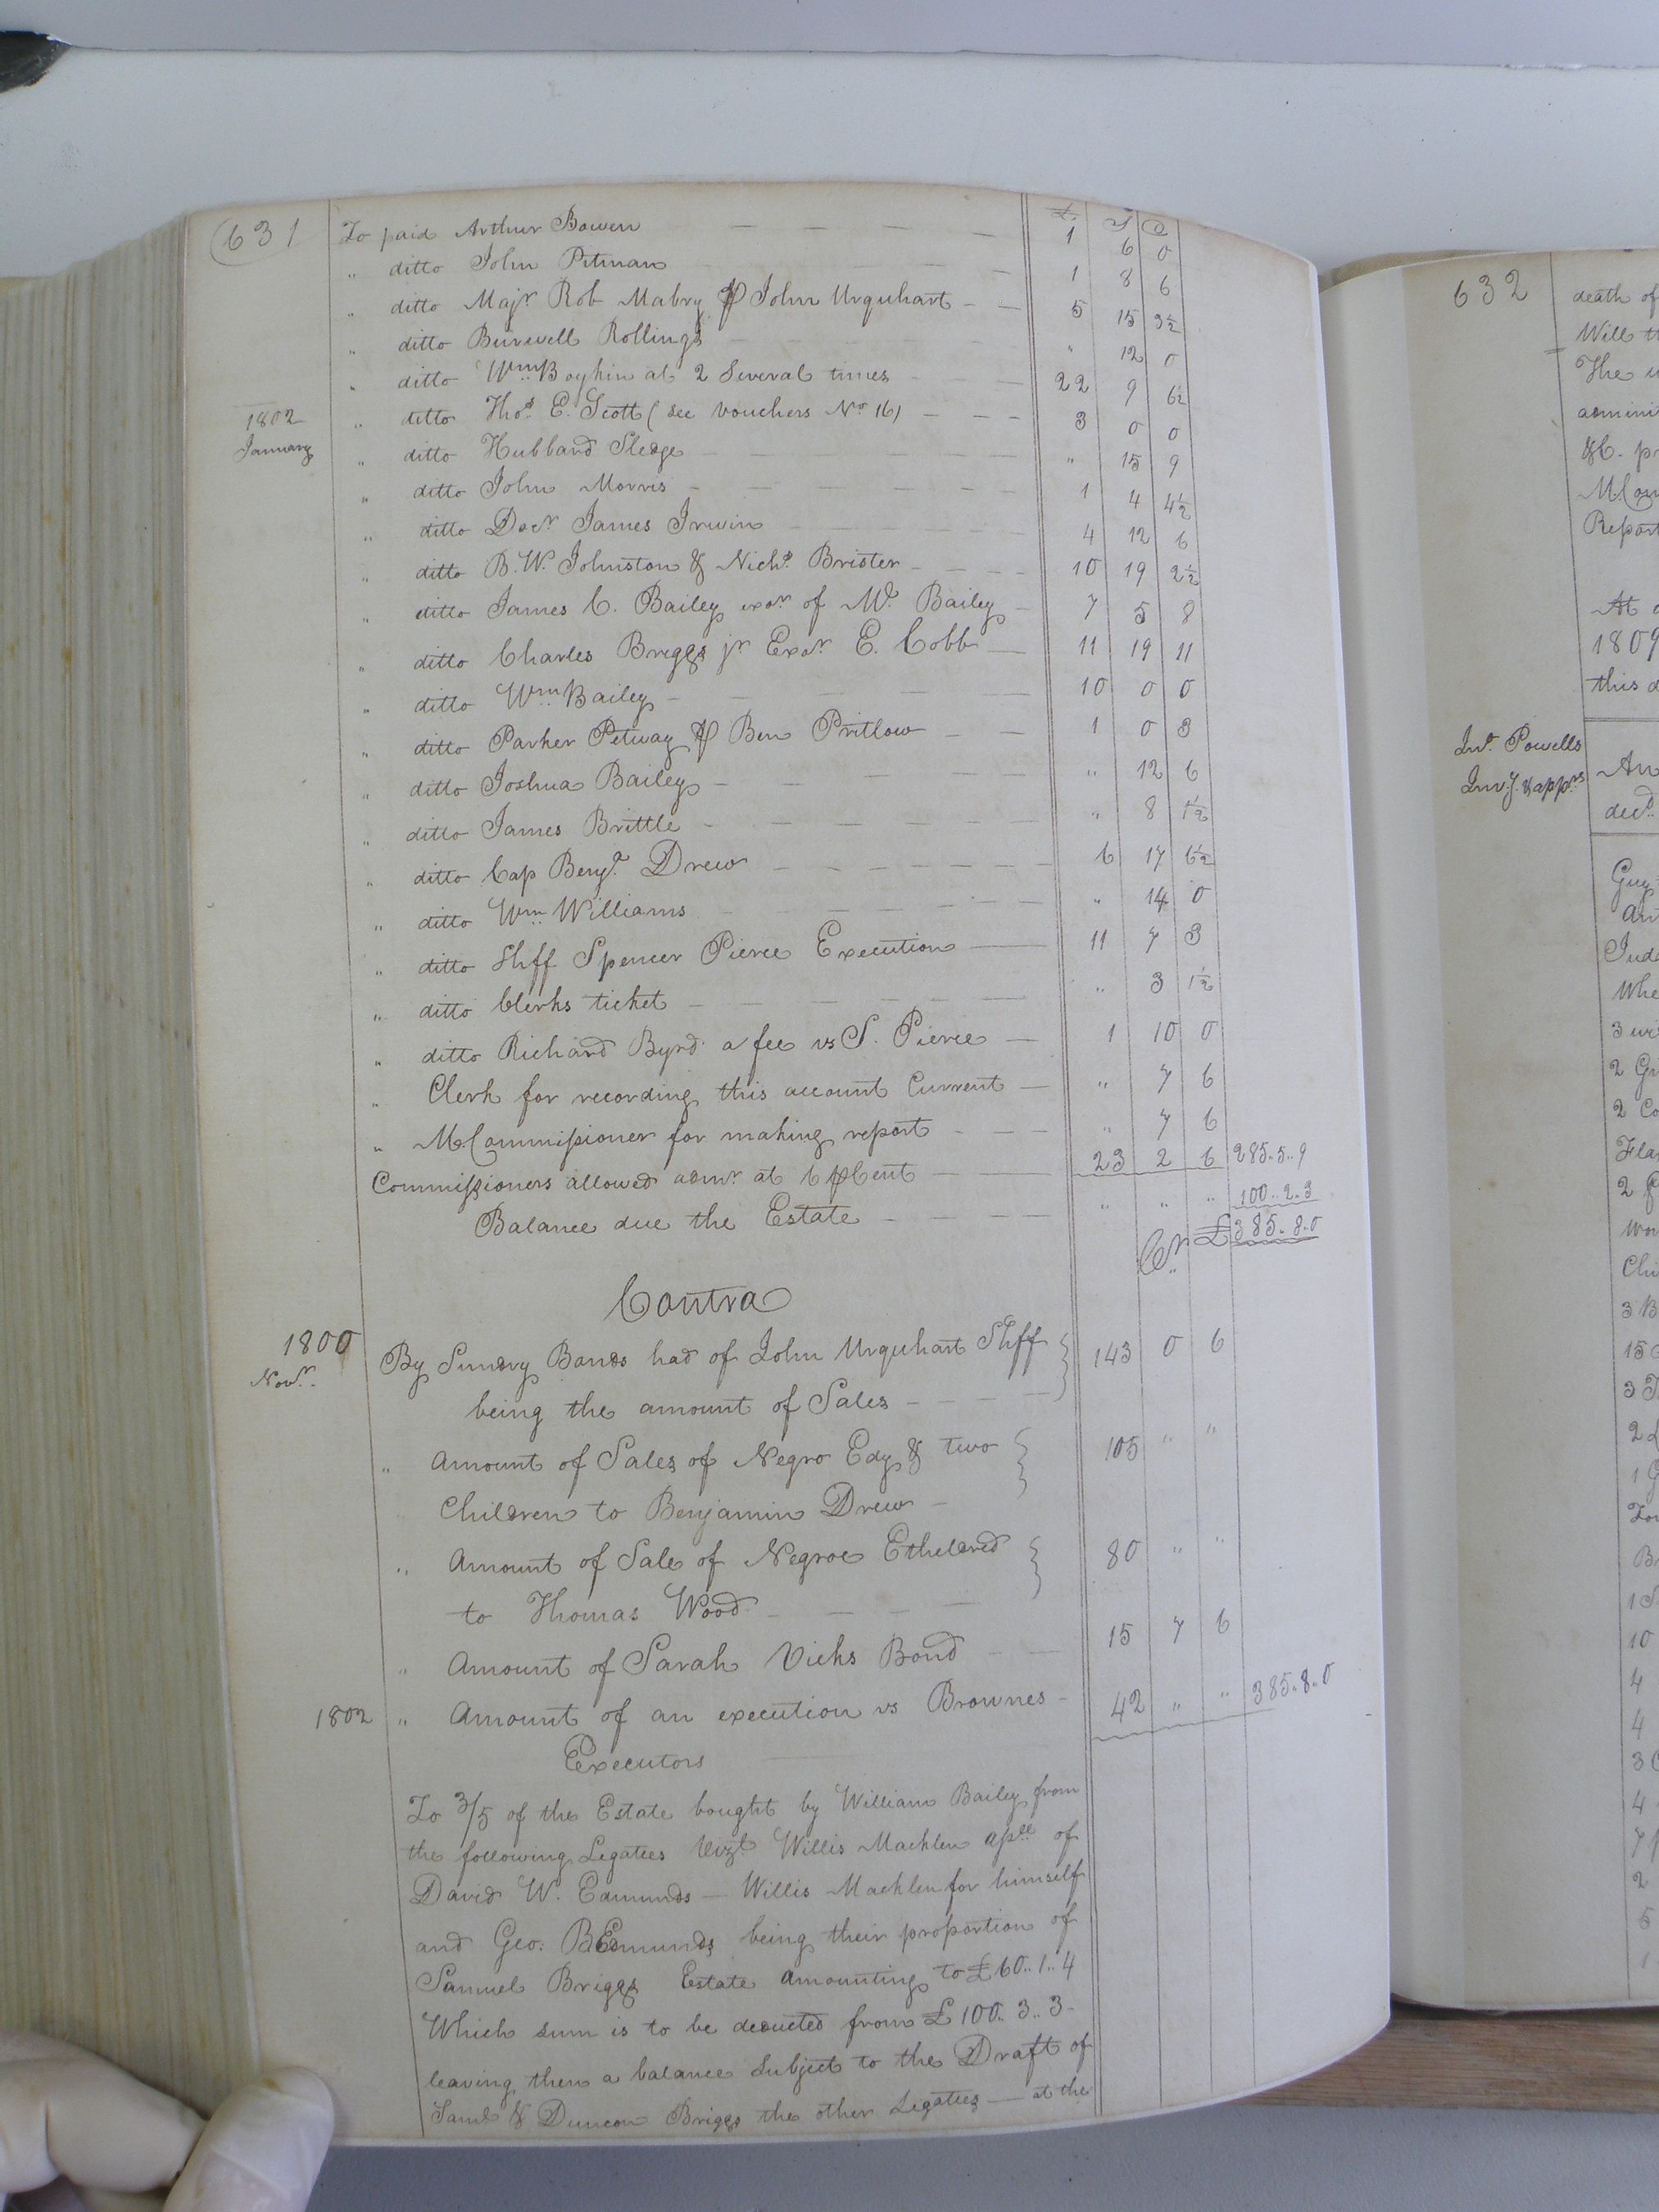 631
£ S D
To paid Arthur Bowen — — — — 1 6 0
" ditto John Pitman — — — 1 8 6
" ditto Majr Rob Mabry ⅌ John Urquhart — — 5 15 3½
" ditto Burwell Rollings — — — " 12 0
" ditto Wm Boykin at 2 Several times — — 22 9 6½
1802 " ditto Thos E. Scott (see vouchers No 16) — — — 3 0 0
January " ditto Hubbard Sledge — — — " 15 9
" ditto John Morris — — — 1 4 4½
" ditto Docr James Irwin — — — 4 12 6
" ditto B. W. Johnston & Nichs Brister — — — 10 19 2½
" ditto James C. Bailey exor of Wm Bailey — 7 5 8
" ditto Charles Briggs jr Exor E. Cobb — 11 19 11
" ditto Wm Bailey — — — 10 0 0
" ditto Parker Petway ⅌ Ben Pritlow — — 1 0 3
" ditto Joshua Bailey — — — " 12 6
" ditto James Brittle — — — " 8 1½
" ditto Cap Benja Drew — — — 6 17 6½
" ditto Wm Williams — — — " 14 0
" ditto Shff Spencer Pierce Execution — 11 7 3
" ditto Clerks ticket — — — " 3 1½
" ditto Richard Byrd a fee vs S. Pierce — 1 10 0
" Clerk for recording this account Current — " 7 6
" M Commissioner for making report — — " 7 6
Commissioners allowed admr at 6 ⅌ Cent — — 23 2 6 285..5..9
Balance due the Estate — — — " " " 100..2..3
£385..8..0
Cr
Contra
1800 By Sundry Bonds had of John Urquhart Shff 143 0 6
Novr being the amount of Sales — — —
" Amount of Sales of Negro Edy & two 105 " "
Children to Benjamin Drew —
" Amount of Sale of Negroe Etheldred 80 " "
to Thomas Wood — — —
" Amount of Sarah Vicks Bond — — 15 7 6
1802 " Amount of an execution vs Brownes — 42 " " 385..8..0
Executors
To 3/5 of the Estate bought by William Bailey from
the following Legatees Vizt Willis Macklen of
David W. Edmunds — Willis Macklen for himself
and Geo. B Edmunds being their proportion of
Samuel Briggs Estate amounting to £60..1..4
Which sum is to be deducted from £100..3..3
leaving then a balance Subject to the Draft of
Saml & Duncon Briggs the other Legatees — at the
632
death of
Will
The
&C.
Report
At
1809
this
Powells
An
decd
3
2
2
2
3
15
3
2
1
1
10
4
4
3
4
7
2
5
1